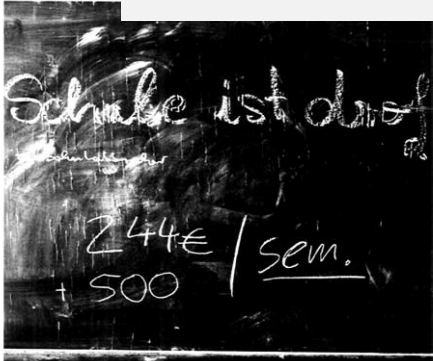 Schule ist doof
244€ / sem.
+ 500